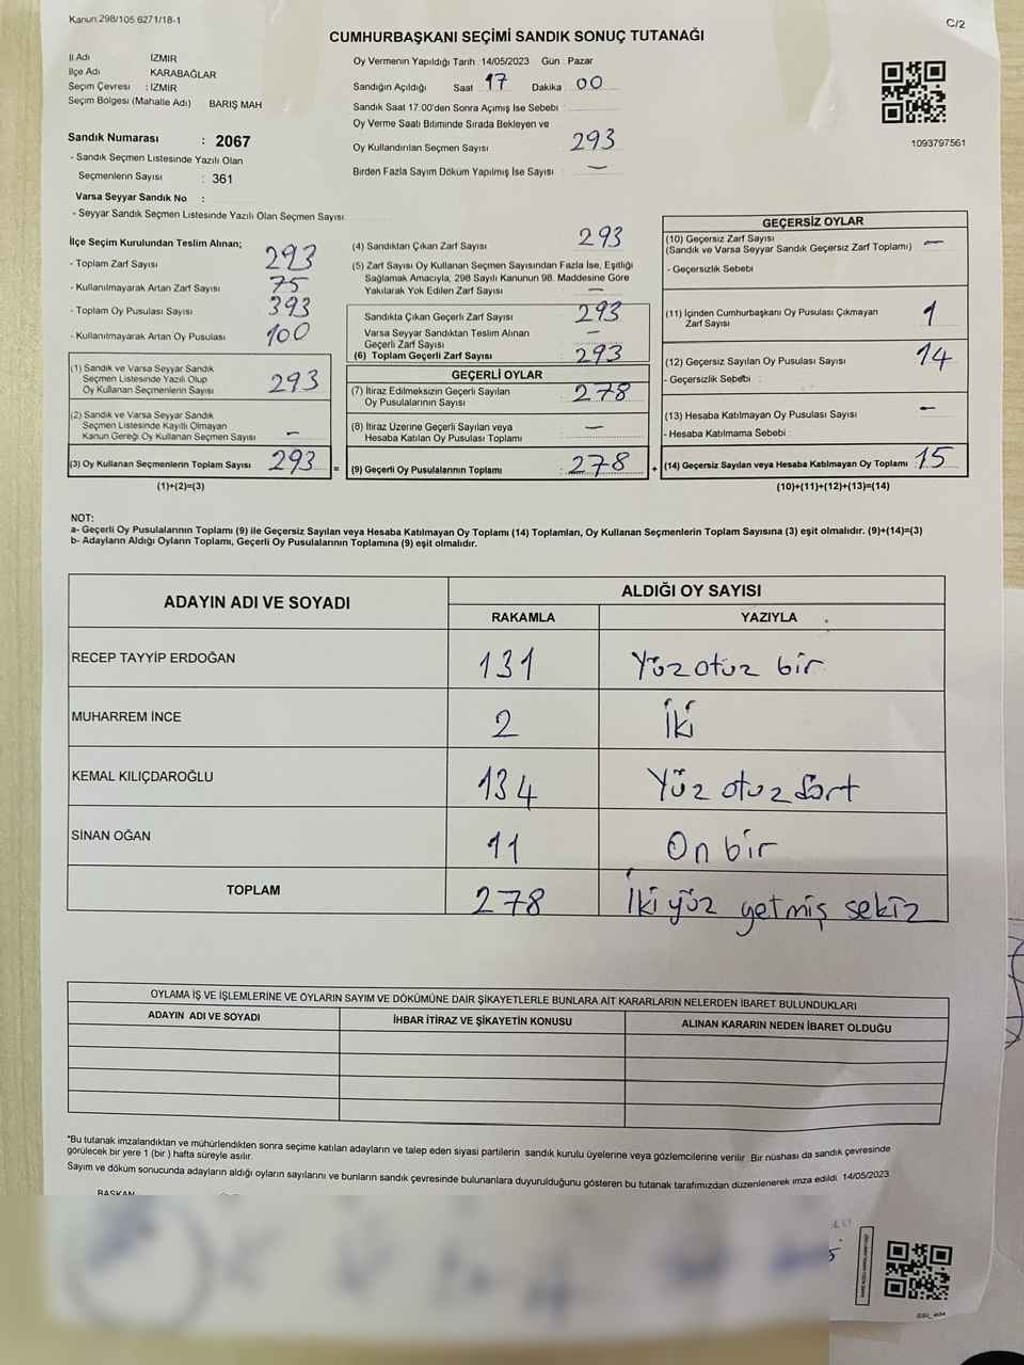 Kanun 298/105 6271/18-1
C/2
CUMHURBAŞKANI SEÇİMİ SANDIK SONUÇ TUTANAĞI
İl Adı İZMİR
İlçe Adı KARABAĞLAR
Seçim Çevresi : İZMİR
Seçim Bölgesi (Mahalle Adı) BARIŞ MAH
Sandık Numarası : 2067
- Sandık Seçmen Listesinde Yazılı Olan
Seçmenlerin Sayısı : 361
Varsa Seyyar Sandık No :
- Seyyar Sandık Seçmen Listesinde Yazılı Olan Seçmen Sayısı
Oy Vermenin Yapıldığı Tarih : 14/05/2023 Gün : Pazar
Sandığın Açıldığı Saat 17 Dakika 00
Sandık Saat 17:00'den Sonra Açımış İse Sebebi
Oy Verme Saati Bitiminde Sırada Bekleyen ve
Oy Kullandırılan Seçmen Sayısı 293
Birden Fazla Sayım Döküm Yapılmış İse Sayısı —
1093797561
İlçe Seçim Kurulundan Teslim Alınan;
- Toplam Zarf Sayısı 293
- Kullanılmayarak Artan Zarf Sayısı 75
- Toplam Oy Pusulası Sayısı 393
- Kullanılmayarak Artan Oy Pusulası 100
(1) Sandık ve Varsa Seyyar Sandık
Seçmen Listesinde Yazılı Olup
Oy Kullanan Seçmenlerin Sayısı 293
(2) Sandık ve Varsa Seyyar Sandık
Seçmen Listesinde Kayıtlı Olmayan
Kanun Gereği Oy Kullanan Seçmen Sayısı —
(3) Oy Kullanan Seçmenlerin Toplam Sayısı 293 =
(1)+(2)=(3)
(4) Sandıktan Çıkan Zarf Sayısı 293
(5) Zarf Sayısı Oy Kullanan Seçmen Sayısından Fazla İse, Eşitliği
Sağlamak Amacıyla, 298 Sayılı Kanunun 98. Maddesine Göre
Yakılarak Yok Edilen Zarf Sayısı —
Sandıkta Çıkan Geçerli Zarf Sayısı 293
Varsa Seyyar Sandıktan Teslim Alınan
Geçerli Zarf Sayısı —
(6) Toplam Geçerli Zarf Sayısı 293
GEÇERLİ OYLAR
(7) İtiraz Edilmeksizin Geçerli Sayılan
Oy Pusulalarının Sayısı 278
(8) İtiraz Üzerine Geçerli Sayılan veya
Hesaba Katılan Oy Pusulası Toplamı —
(9) Geçerli Oy Pusulalarının Toplamı 278 +
GEÇERSİZ OYLAR
(10) Geçersiz Zarf Sayısı
(Sandık ve Varsa Seyyar Sandık Geçersiz Zarf Toplamı) —
- Geçersizlik Sebebi
(11) İçinden Cumhurbaşkanı Oy Pusulası Çıkmayan
Zarf Sayısı 1
(12) Geçersiz Sayılan Oy Pusulası Sayısı 14
- Geçersizlik Sebebi :
(13) Hesaba Katılmayan Oy Pusulası Sayısı —
- Hesaba Katılmama Sebebi
(14) Geçersiz Sayılan veya Hesaba Katılmayan Oy Toplamı 15
(10)+(11)+(12)+(13)=(14)
NOT:
a- Geçerli Oy Pusulalarının Toplamı (9) ile Geçersiz Sayılan veya Hesaba Katılmayan Oy Toplamı (14) Toplamları, Oy Kullanan Seçmenlerin Toplam Sayısına (3) eşit olmalıdır. (9)+(14)=(3)
b- Adayların Aldığı Oyların Toplamı, Geçerli Oy Pusulalarının Toplamına (9) eşit olmalıdır.
ADAYIN ADI VE SOYADI ALDIĞI OY SAYISI
RAKAMLA YAZIYLA
RECEP TAYYİP ERDOĞAN 131 Yüz otuz bir
MUHARREM İNCE 2 İki
KEMAL KILIÇDAROĞLU 134 Yüz otuz dört
SİNAN OĞAN 11 On bir
TOPLAM 278 İki yüz yetmiş sekiz
OYLAMA İŞ VE İŞLEMLERİNE VE OYLARIN SAYIM VE DÖKÜMÜNE DAİR ŞİKAYETLERLE BUNLARA AİT KARARLARIN NELERDEN İBARET BULUNDUKLARI
ADAYIN ADI VE SOYADI İHBAR İTİRAZ VE ŞİKAYETİN KONUSU ALINAN KARARIN NEDEN İBARET OLDUĞU
"Bu tutanak imzalandıktan ve mühürlendikten sonra seçime katılan adayların ve talep eden siyasi partilerin sandık kurulu üyelerine veya gözlemcilerine verilir. Bir nüshası da sandık çevresinde
görülecek bir yere 1 (bir) hafta süreyle asılır.
Sayım ve döküm sonucunda adayların aldığı oyların sayılarını ve bunların sandık çevresinde bulunanlara duyurulduğunu gösteren bu tutanak tarafımızdan düzenlenerek imza edildi. 14/05/2023
BAŞKAN